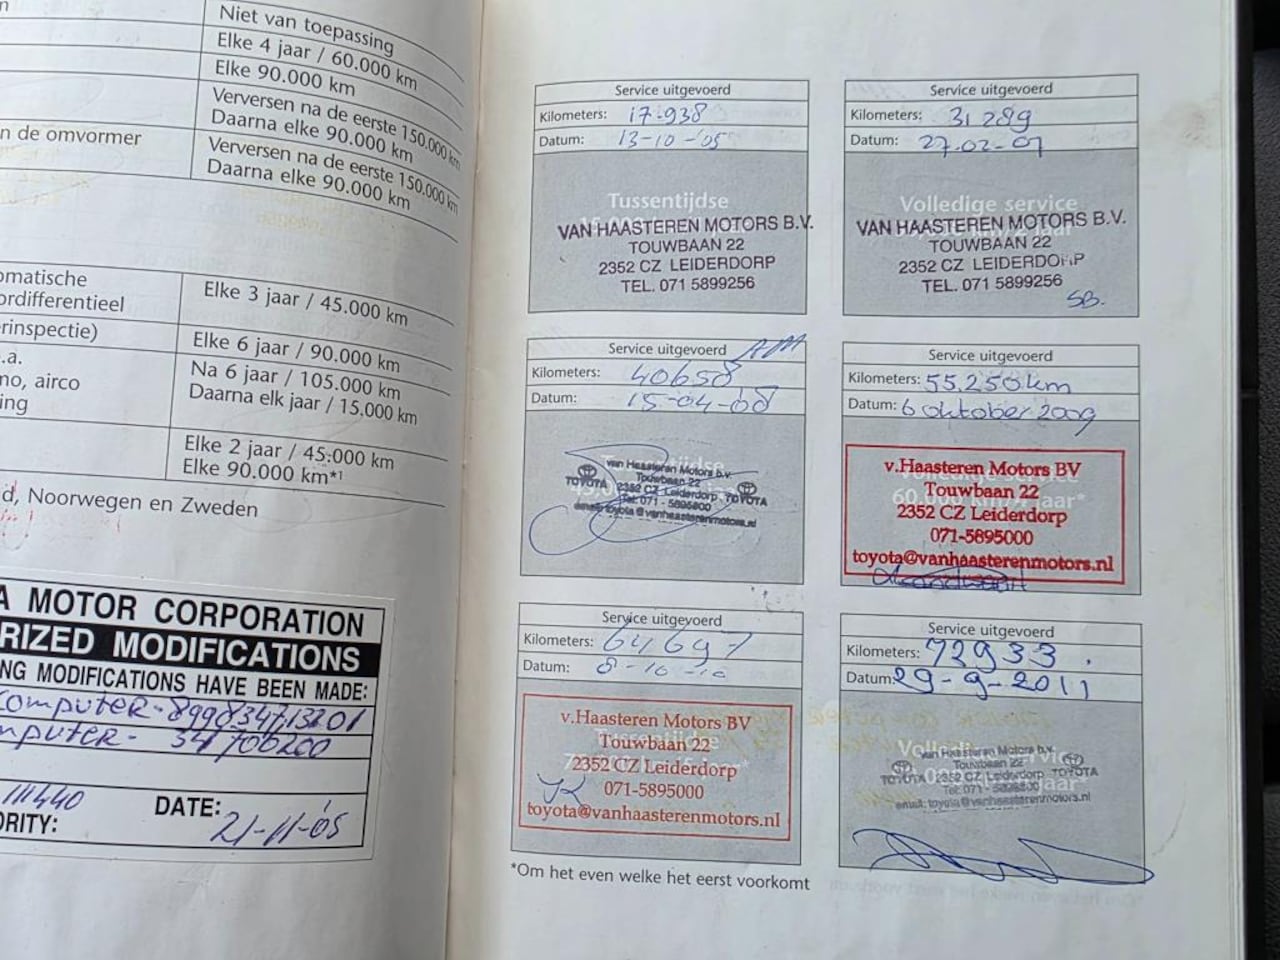 Niet van toepassing
Elke 4 jaar / 60.000 km
Elke 90.000 km
Verversen na de eerste 150.000 km
Daarna elke 90.000 km
n de omvormer
Verversen na de eerste 150.000 km
Daarna elke 90.000 km
omatische
ordifferentieel
Elke 3 jaar / 45.000 km
erinspectie)
Elke 6 jaar / 90.000 km
.a.
mo, airco
ing
Na 6 jaar / 105.000 km
Daarna elk jaar / 15.000 km
Elke 2 jaar / 45.000 km
Elke 90.000 km*1
d, Noorwegen en Zweden
A MOTOR CORPORATION
RIZED MODIFICATIONS
NG MODIFICATIONS HAVE BEEN MADE:
computer - 8998347,13201
mputer - 341706200
111440
ORITY:
DATE:
21-11-05
Service uitgevoerd
Kilometers: 17.938
Datum: 13-10-'05
Tussentijdse
VAN HAASTEREN MOTORS B.V.
TOUWBAAN 22
2352 CZ LEIDERDORP
TEL. 071 5899256
Service uitgevoerd
Kilometers: 31289
Datum: 27-02-07
Volledige service
VAN HAASTEREN MOTORS B.V.
TOUWBAAN 22
2352 CZ LEIDERDORP
TEL. 071 5899256
SB.
Service uitgevoerd
Kilometers: 40658
Datum: 15-04-08
van Haasteren Motors b.v.
Touwbaan 22
TOYOTA 2352 CZ Leiderdorp TOYOTA
Tel: 071 - 5895000
email: toyota@vanhaasterenmotors.nl
Service uitgevoerd
Kilometers: 55.250 km
Datum: 6 oktober 2009
v.Haasteren Motors BV
Touwbaan 22
2352 CZ Leiderdorp
071-5895000
toyota@vanhaasterenmotors.nl
Service uitgevoerd
Kilometers: 64697
Datum: 8-10-10
v.Haasteren Motors BV
Touwbaan 22
2352 CZ Leiderdorp
071-5895000
toyota@vanhaasterenmotors.nl
Service uitgevoerd
Kilometers: 72933.
Datum: 29-9-2011
van Haasteren Motors b.v.
Touwbaan 22
TOYOTA 2352 CZ Leiderdorp TOYOTA
Tel: 071 - 5895000
email: toyota@vanhaasterenmotors.nl
*Om het even welke het eerst voorkomt